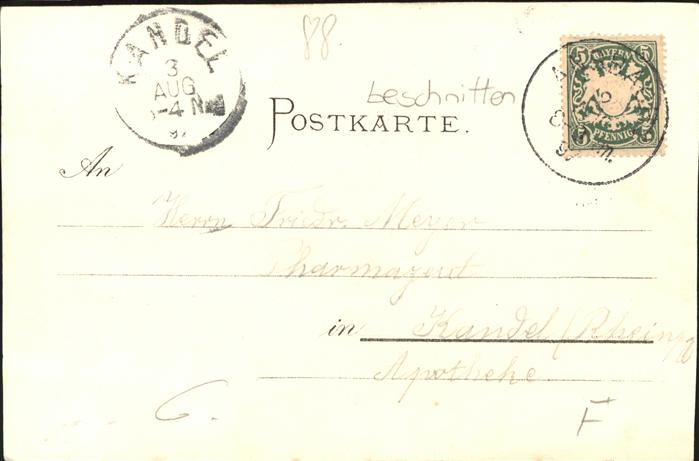 88.
KANDEL
3
AUG
-4 N
97
beschnitten
5 BAYERN 5
PFENNIG
POSTKARTE.
An
Herrn Friedr. Meyer
Pharmazeut
in Kandel (Rheinpf
Apotheke
6.
F